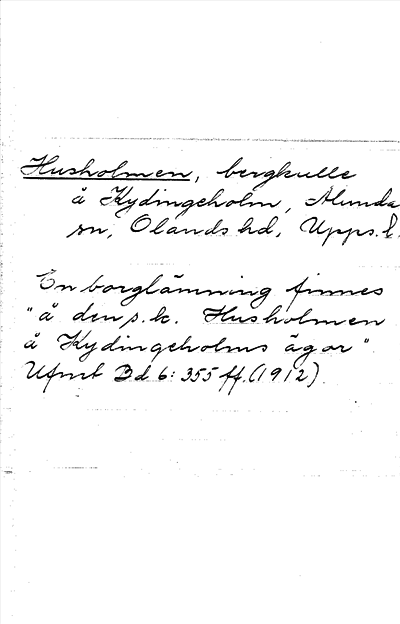 Husholmen, bergkulle
å Kydingeholm, Alunda
sn, Olands hd, Upps. l.
En borglämning finnes
"å den s.k. Husholmen
å Kydingeholms ägor".
Ufmt Bd 6: 355 ff. (1912)